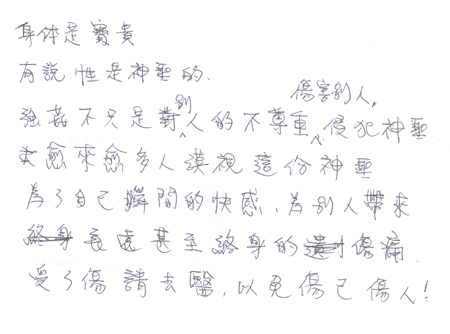 身体是寶貴
有說性是神聖的.
強姦不只是對別人的不尊重,傷害別人,侵犯神聖
愈來愈多人漠視這份神聖
為了自己瞬間的快感、為別人帶來
終身長遠甚至終身的傷痛
受了傷請去醫,以免傷己傷人!